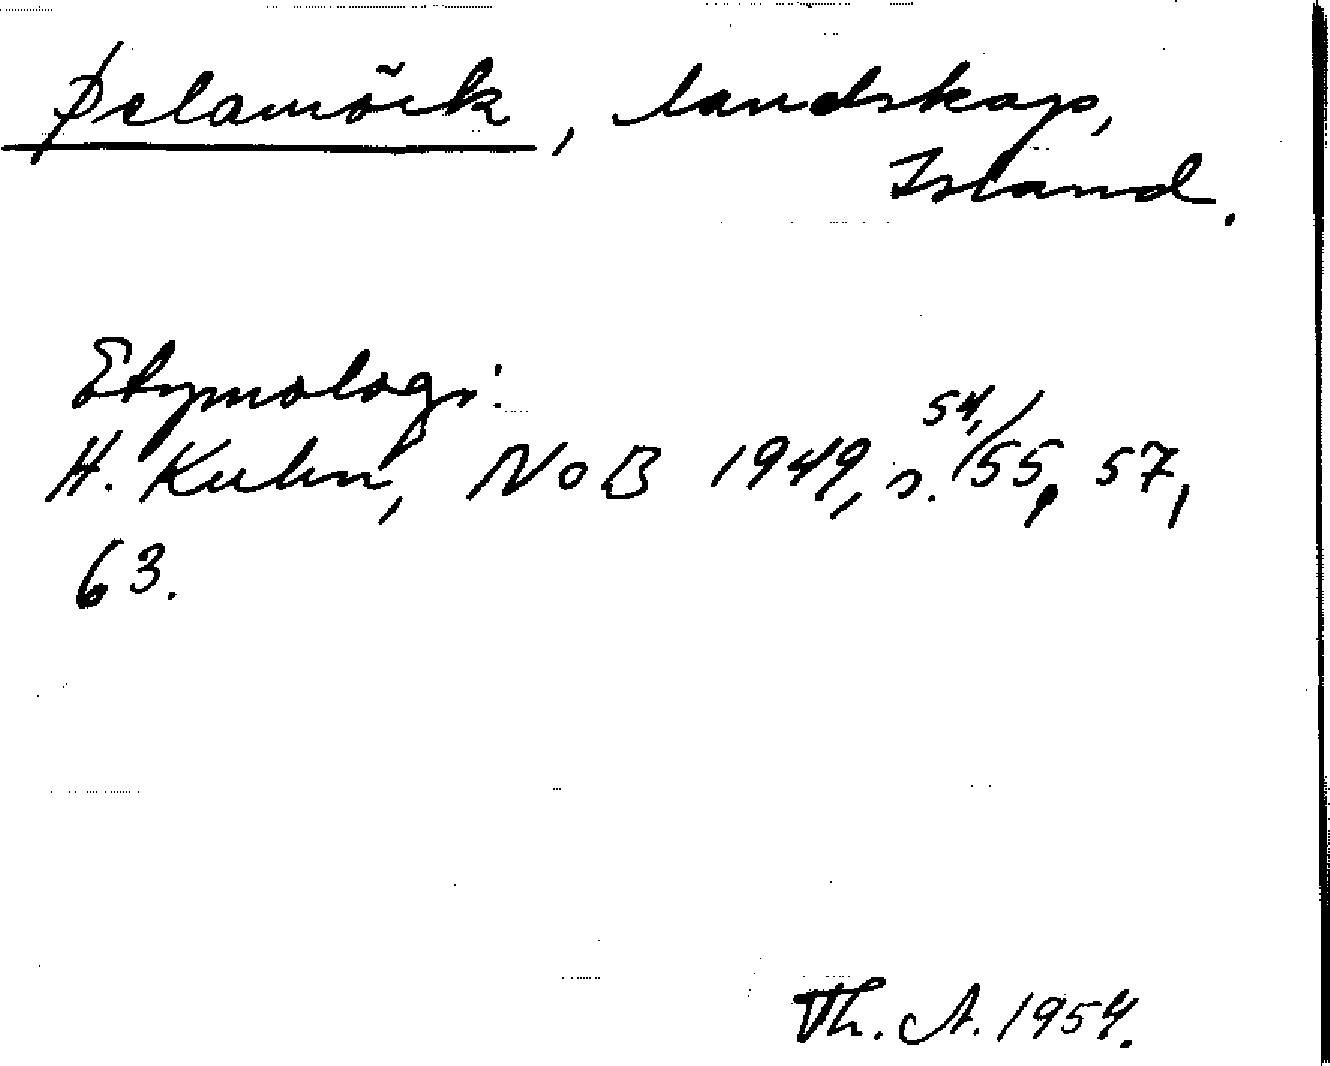 Þelamörk, landskap,
Island.
Etymologi:
H. Kuhn, NoB 1949, s. 54, 55, 57,
63.
Th. A. 1954.